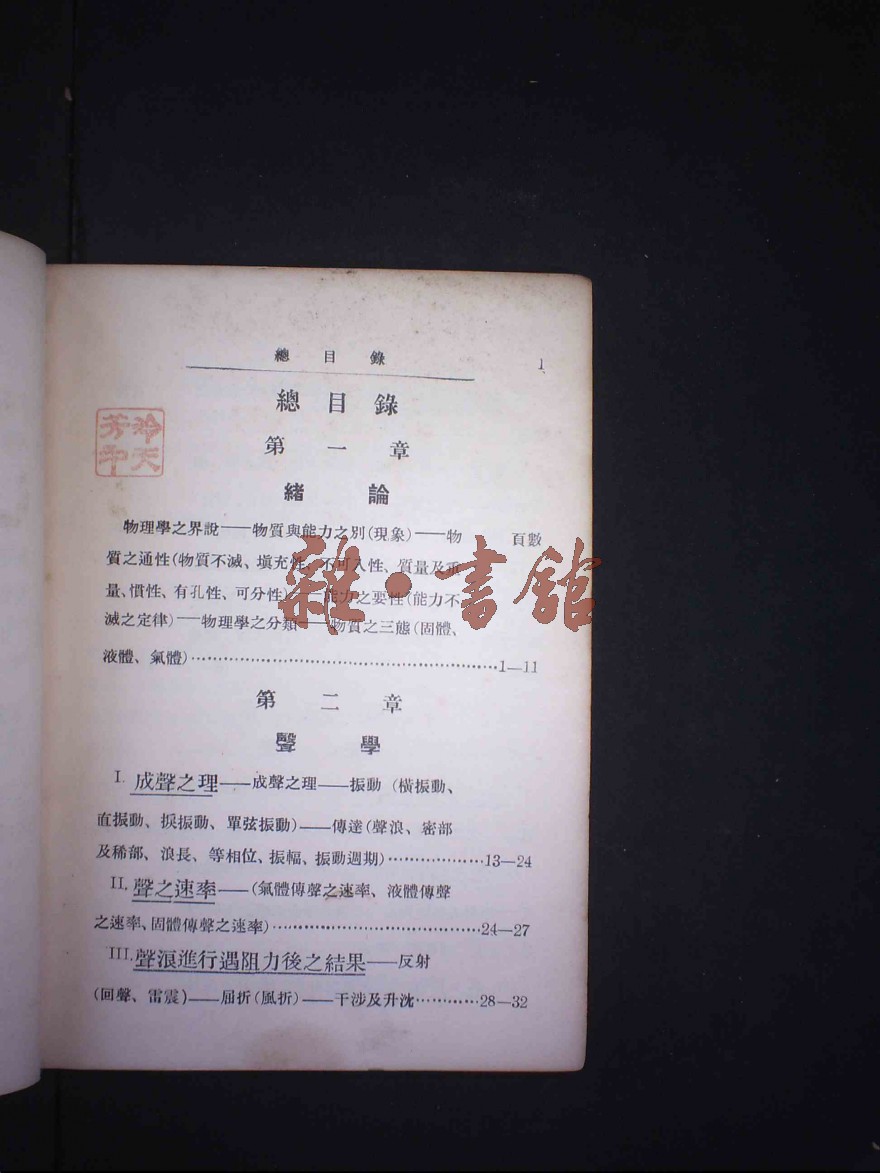 總目錄 1
總目錄
第一章
緒論
物理學之界說——物質與能力之別(現象)——物 頁數
質之通性(物質不滅、塡充性、不可入性、質量及重
量、慣性、有孔性、可分性)——能力之要性(能力不
滅之定律)——物理學之分類——物質之三態(固體、
液體、氣體)…………………………………………1—11
第二章
聲學
I. 成聲之理——成聲之理——振動 (橫振動、
直振動、捩振動、單弦振動)——傳達(聲浪、密部
及稀部、浪長、等相位、振幅、振動週期)………………13—24
II. 聲之速率——(氣體傳聲之速率、液體傳聲
之速率、固體傳聲之速率)…………………………………24—27
III. 聲浪進行遇阻力後之結果——反射
(回聲、雷震)——屈折(風折)——干涉及升沈…………28—32
雜·書館